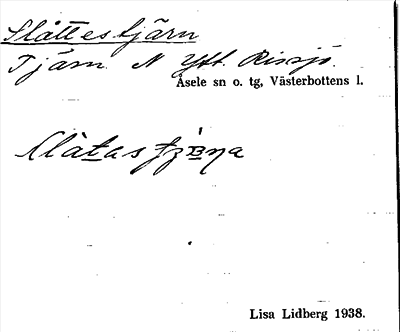 Slåttestjärn
Tjärn. N Ytt. Rissjö.
Åsele sn o. tg, Västerbottens l.
Lisa Lidberg 1938.